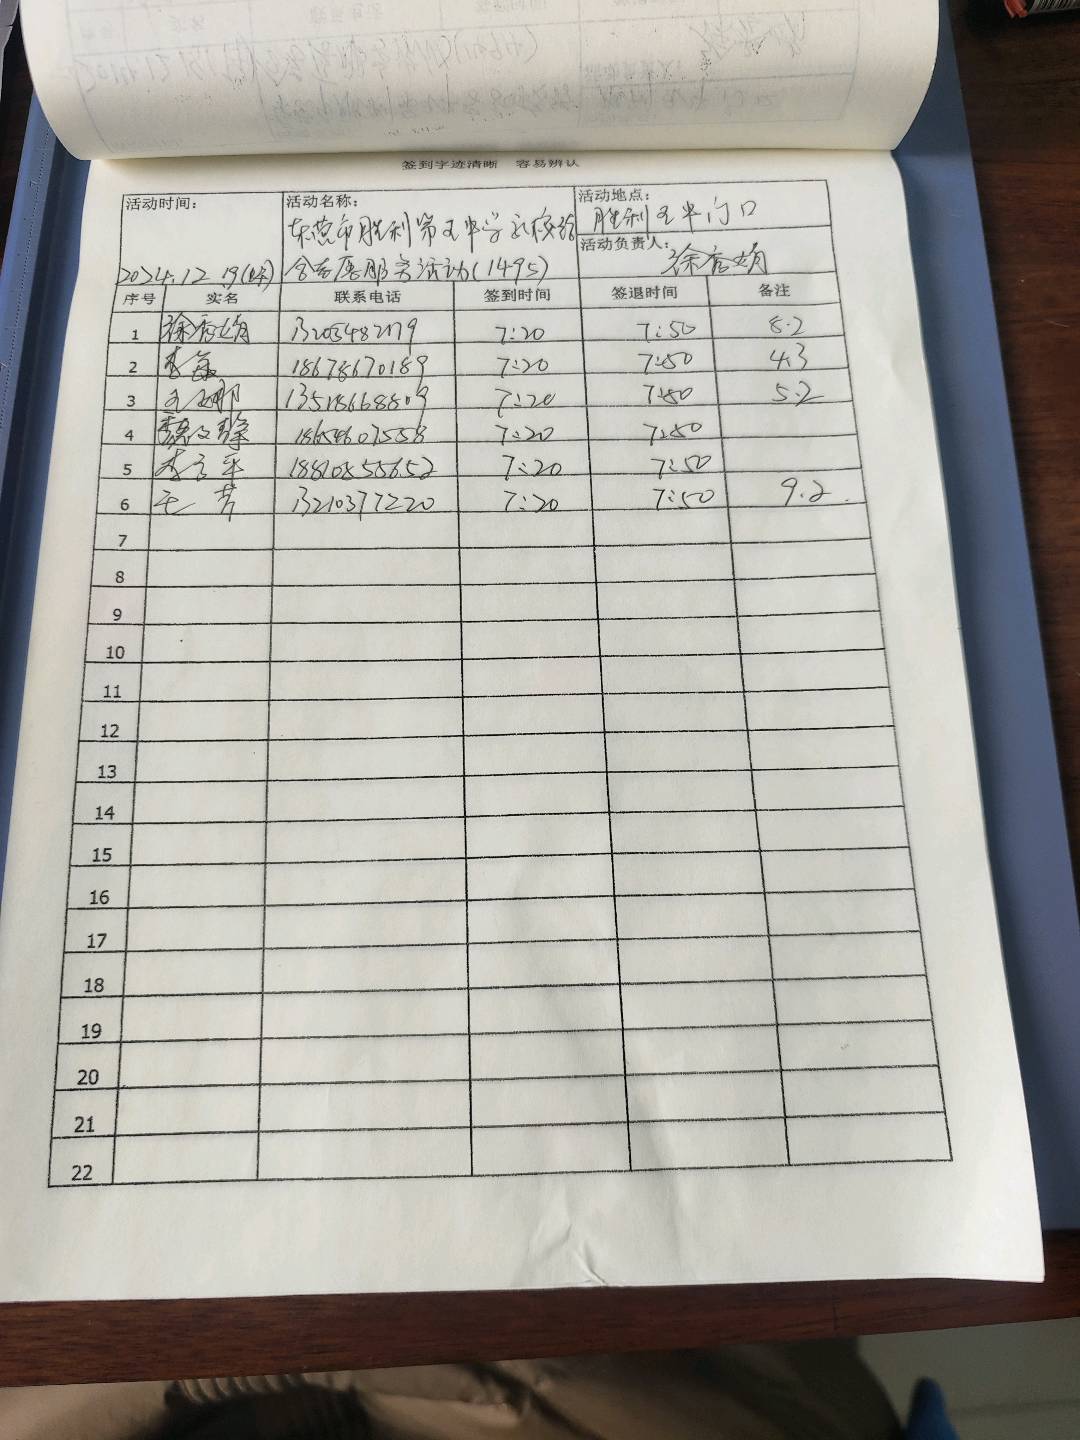 签到字迹清晰 容易辨认
活动时间: 活动名称: 活动地点:
东营市胜利第五中学 胜利五中门口
活动负责人: 徐香娟
2024.12.19 志愿服务活动(1495)
序号 实名 联系电话 签到时间 签退时间 备注
1 徐香娟 7:20 7:50 8.2
2 18678670189 7:20 7:50 4.3
3 王 娜 13518668809 7:20 7:50 5.2
4 魏 静 18654607558 7:20 7:50
5 李 平 7:20 7:50
6 芳 13210377220 7:20 7:50 9.2
7
8
9
10
11
12
13
14
15
16
17
18
19
20
21
22